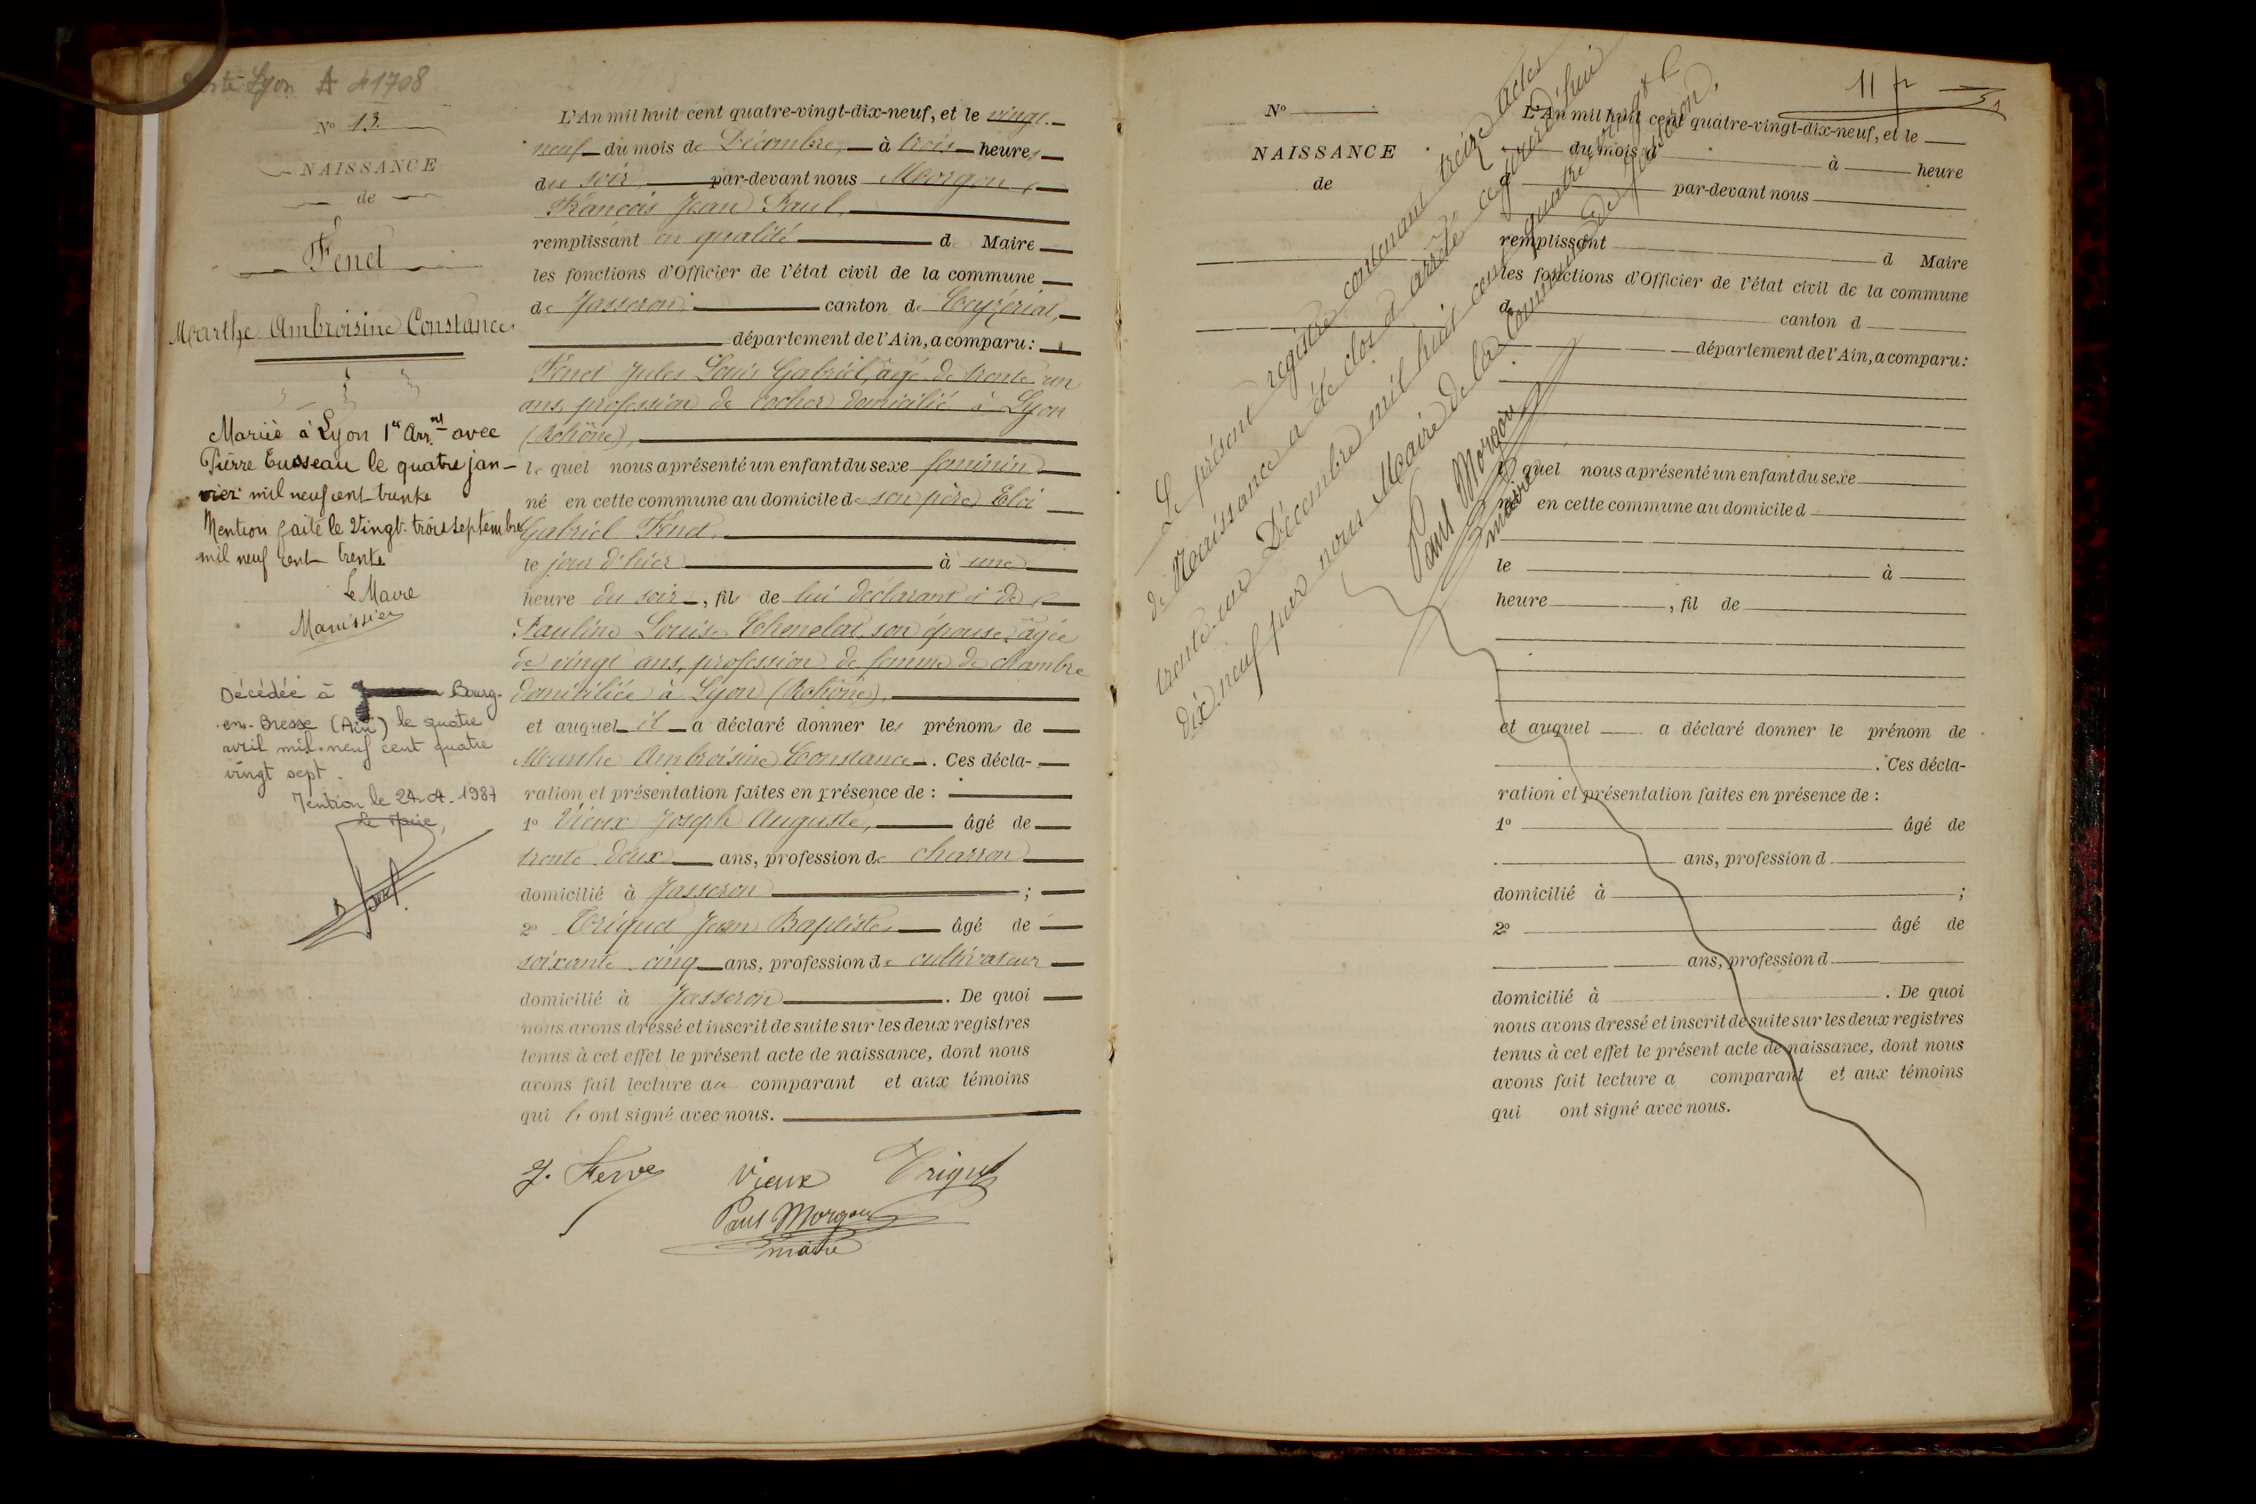 Lyon A 41708
Nº 13
NAISSANCE
de
Fenet
Marthe Ambroisine Constance
Mariée à Lyon 1er Arr.nt avec
Pierre Eusseau le quatre jan-
vier mil neuf cent trente
Mention faite le vingt-trois septembre
mil neuf cent trente
Le Maire
Décédée à Bourg-
en-Bresse (Ain) le quatre
avril mil-neuf cent quatre
vingt sept.
Mention le 24-4-1987
Le Maire,
L'An mil huit cent quatre-vingt-dix-neuf, et le vingt-
neuf du mois de Décembre, à trois heures
du soir par-devant nous Morgon,
François Jean Paul,
remplissant en qualité de Maire
les fonctions d'Officier de l'état civil de la commune
de Jasseron, canton de Ceyzériat,
département de l'Ain, a comparu:
Fenet Jules Louis Gabriel, âgé de trente un
ans, profession de cocher domicilié à Lyon
(Rhône),
lequel nous a présenté un enfant du sexe féminin
né en cette commune au domicile de son père Eloi
Gabriel Fenet,
le jour d'hier à une
heure du soir, fils de lui déclarant et de
Pauline Louise son épouse, âgée
de vingt ans, profession de femme de chambre
domiciliée à Lyon (Rhône),
et auquel il a déclaré donner les prénoms de
Marthe Ambroisine Constance. Ces décla-
ration et présentation faites en présence de :
1º Vieux Joseph Auguste, âgé de
trente deux ans, profession de charron
domicilié à Jasseron ;
2º Triquet Jean Baptiste, âgé de
soixante cinq ans, profession de cultivateur
domicilié à Jasseron. De quoi
nous avons dressé et inscrit de suite sur les deux registres
tenus à cet effet le présent acte de naissance, dont nous
avons fait lecture au comparant et aux témoins
qui ont signé avec nous.
Vieux Triquet
Paul Morgon
maire
11
Nº
NAISSANCE
de
L'An mil huit cent quatre-vingt-dix-neuf, et le
du mois d à heure
d par-devant nous
remplissant d Maire
les fonctions d'Officier de l'état civil de la commune
d canton d
département de l'Ain, a comparu:
l quel nous a présenté un enfant du sexe
né en cette commune au domicile d
le à
heure , fil de
et auquel a déclaré donner le prénom de
. Ces décla-
ration et présentation faites en présence de :
1º âgé de
ans, profession d
domicilié à ;
2º âgé de
ans, profession d
domicilié à . De quoi
nous avons dressé et inscrit de suite sur les deux registres
tenus à cet effet le présent acte de naissance, dont nous
avons fait lecture a comparant et aux témoins
qui ont signé avec nous.
Le présent registre contenant treize actes
de Naissance a été clos et arrêté ce jourd'hui
trente-un Décembre mil huit cent quatre vingt
dix neuf par nous Maire de la Commune de Jasseron.
Paul Morgon
maire